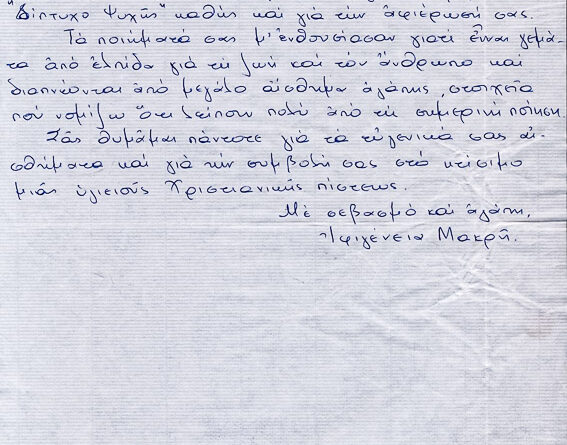 Δίπτυχο Ψυχῆς" καθὼς καὶ γιὰ τὴν ἀφιέρωσή σας.
Τὰ ποιήματά σας μ' ἐνθουσίασαν γιατὶ εἶναι γεμᾶ-
τα ἀπὸ ἐλπίδα γιὰ τὴ ζωὴ καὶ τὸν ἄνθρωπο καὶ
διαπνέονται ἀπὸ μεγάλο αἴσθημα ἀγάπης, στοιχεῖα
ποὺ νομίζω ὅτι λείπουν πολὺ ἀπὸ τὴ σημερινὴ ποίηση.
Σᾶς θυμᾶμαι πάντοτε γιὰ τὰ εὐγενικά σας αἰ-
σθήματα καὶ γιὰ τὴν συμβολή σας στὸ κτίσιμο
μιᾶς ὑγιειοῦς Χριστιανικῆς πίστεως.
Μὲ σεβασμὸ καὶ ἀγάπη,
Ἰφιγένεια Μακρῆ.